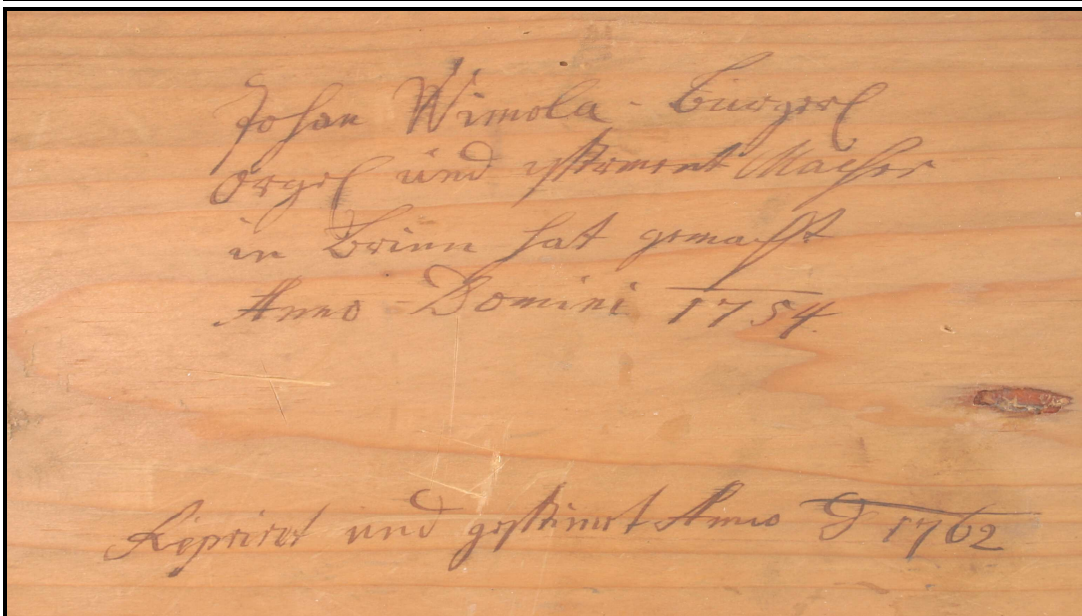 Johan Wimola - Burgerl
Orgel und ystrement Macher
in Brinn hat gemacht
Anno - Domini 1754
Repriret und gestimet Anno D 1762